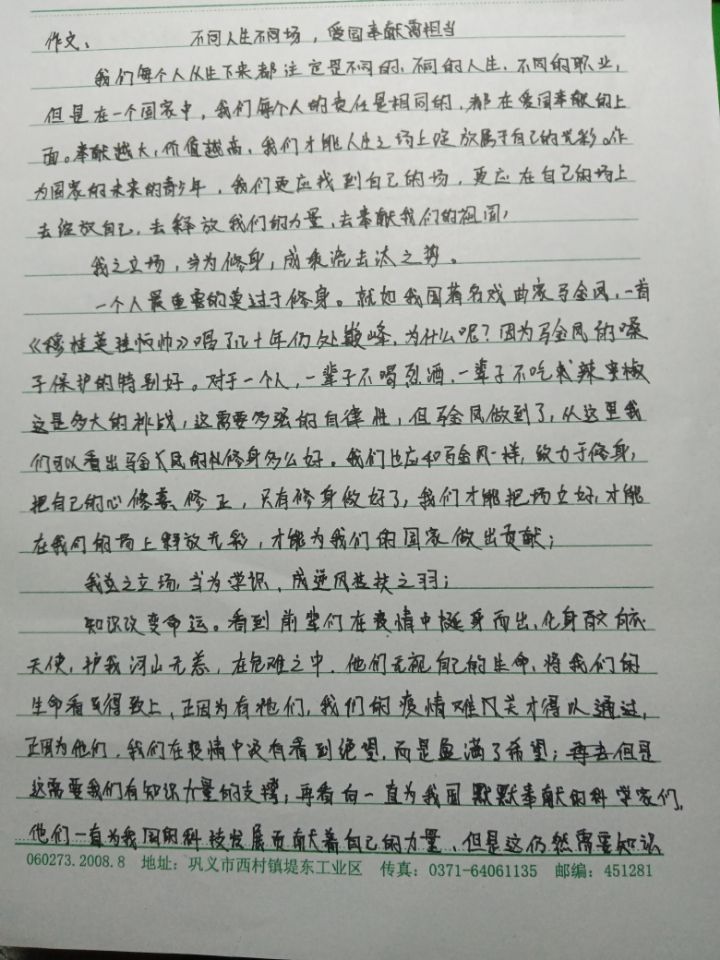 作文、 不同人生不同场，爱国奉献需相当
我们每个人从生下来都注定是不同的、不同的人生、不同的职业，
但是在一个国家中，我们每个人的责任是相同的，都在爱国奉献的上
面。奉献越大，价值越高，我们才能人生之场上绽放属于自己的光彩。作
为国家的未来的青少年，我们更应找到自己的场，更应在自己的场上
去绽放自己，去释放我们的力量，去奉献我们的祖国，
我之立场，当为修身，成乘流击汰之势。
一个人最重要的莫过于修身。就如我国著名戏曲家马金凤，一首
《穆桂英挂帅》唱了几十年仍处巅峰，为什么呢？因为马金凤的嗓
子保护的特别好。对于一个人，一辈子不喝烈酒，一辈子不吃辣椒
这是多大的挑战，这需要多强的自律性，但马金凤做到了，从这里我
们可以看出马金凤的修身多么好。我们也应和马金凤一样，致力于修身，
把自己的心修善、修正，只有修身做好了，我们才能把场立好，才能
在我们的场上释放光彩，才能为我们的国家做出贡献；
我之立场，当为学识，成逆风扶之羽；
知识改变命运。看到前辈们在疫情中挺身而出，化身白衣
天使，护我河山无恙，在危难之中，他们无视自己的生命，将我们的
生命看得致上，正因为有他们，我们的疫情难关才得以通过，
正因为他们，我们在疫情中没有看到绝望，而是充满了希望；但是
这需要我们有知识力量的支撑，再看向一直为我国默默奉献的科学家们，
他们一直为我国的科技发展贡献着自己的力量，但是这仍然需要知识
060273.2008.8 地址：巩义市西村镇堤东工业区 传真：0371-64061135 邮编：451281